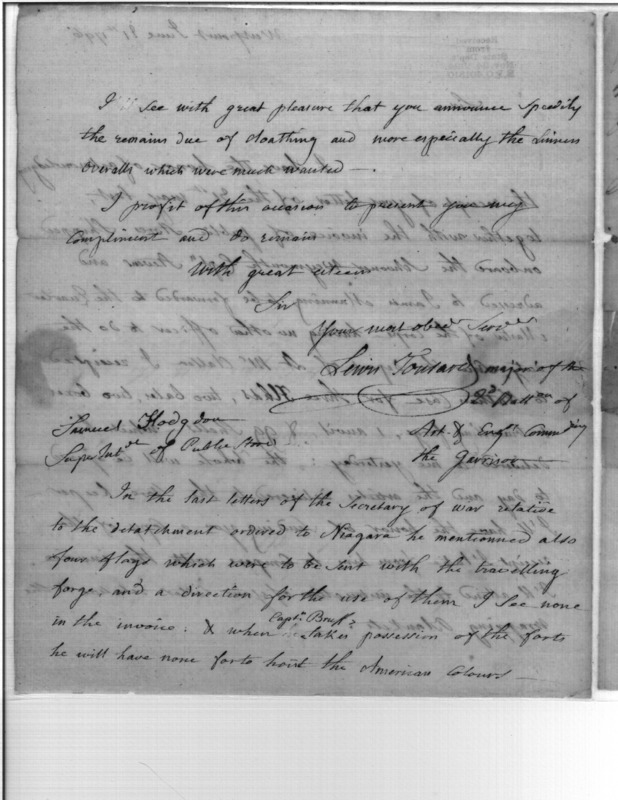 I see with great pleasure that you announce Speedily
the remains due of cloathing and more especially the linnen
overalls which were much wanted —.
I profit of this occasion to present you my
Compliment and do remain
With great esteem
Sir
Your most obedt Servt
Lewis Tousard major of the
2d Battn of
Art & Engrs Commding
the Garrison
Samuel Hodgdon
Super Intdt of Public Stores
In the last letters of the Secretary of war relative
to the detatchment ordered to Niagara he mentionned also
four flags which were to be sent with the travelling
forge and a direction for the use of them I see none
in the invoice. & when Capt. Bruff takes possession of the forts
he will have none forto hoist the American Colours —